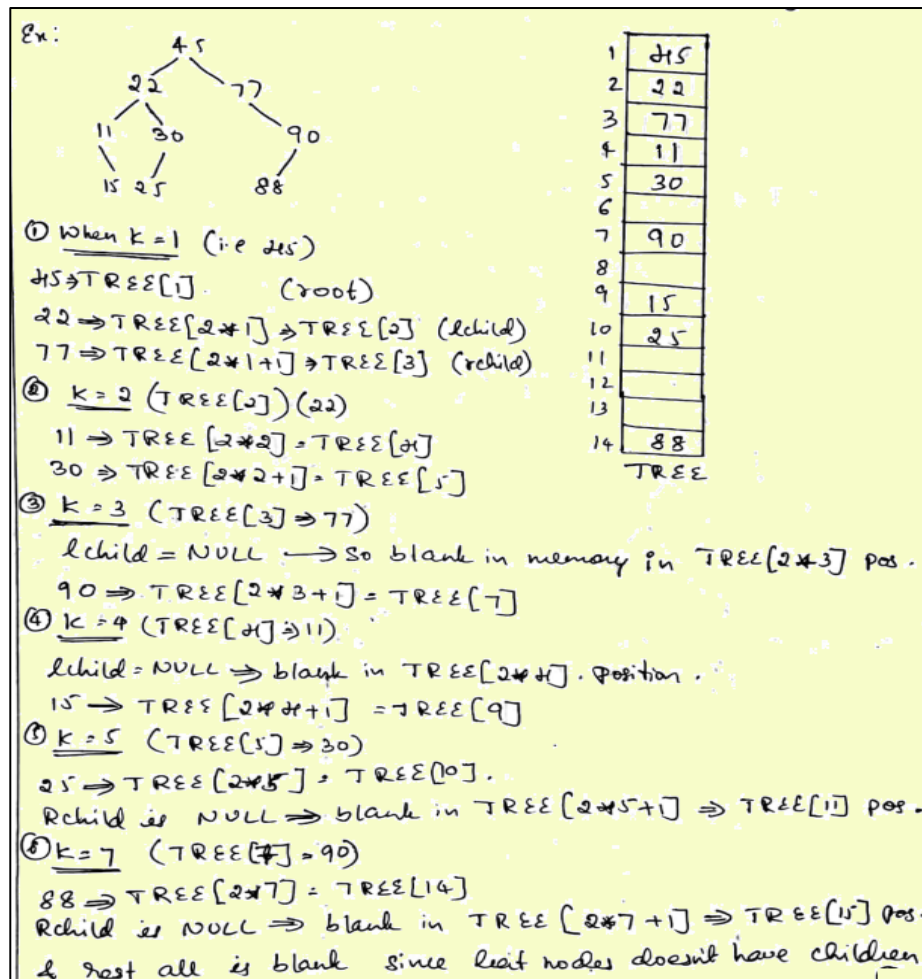 Ex:
45
22 77
11 30 90
15 25 88
1 45
2 22
3 77
4 11
5 30
6
7 90
8
9 15
10 25
11
12
13
14 88
TREE
① When K = 1 (i.e 45)
45 ⇒ TREE[1]. (root)
22 ⇒ TREE[2*1] ⇒ TREE[2] (lchild)
77 ⇒ TREE[2*1+1] ⇒ TREE[3] (rchild)
② K = 2 (TREE[2]) (22)
11 ⇒ TREE [2*2] = TREE[4]
30 ⇒ TREE [2*2+1] = TREE[5]
③ K = 3 (TREE[3] ⇒ 77)
lchild = NULL → so blank in memory in TREE[2*3] pos.
90 ⇒ TREE[2*3+1] = TREE[7]
④ K = 4 (TREE[4] ⇒ 11)
lchild = NULL ⇒ blank in TREE[2*4]. position.
15 → TREE [2*4+1] = TREE[9]
⑤ K = 5 (TREE[5] ⇒ 30)
25 ⇒ TREE [2*5] = TREE[10].
Rchild is NULL ⇒ blank in TREE [2*5+1] ⇒ TREE[11] pos.
⑥ K = 7 (TREE[7] = 90)
88 ⇒ TREE[2*7] = TREE[14]
Rchild is NULL ⇒ blank in TREE [2*7+1] ⇒ TREE[15] pos.
& rest all is blank since leaf nodes doesn't have children